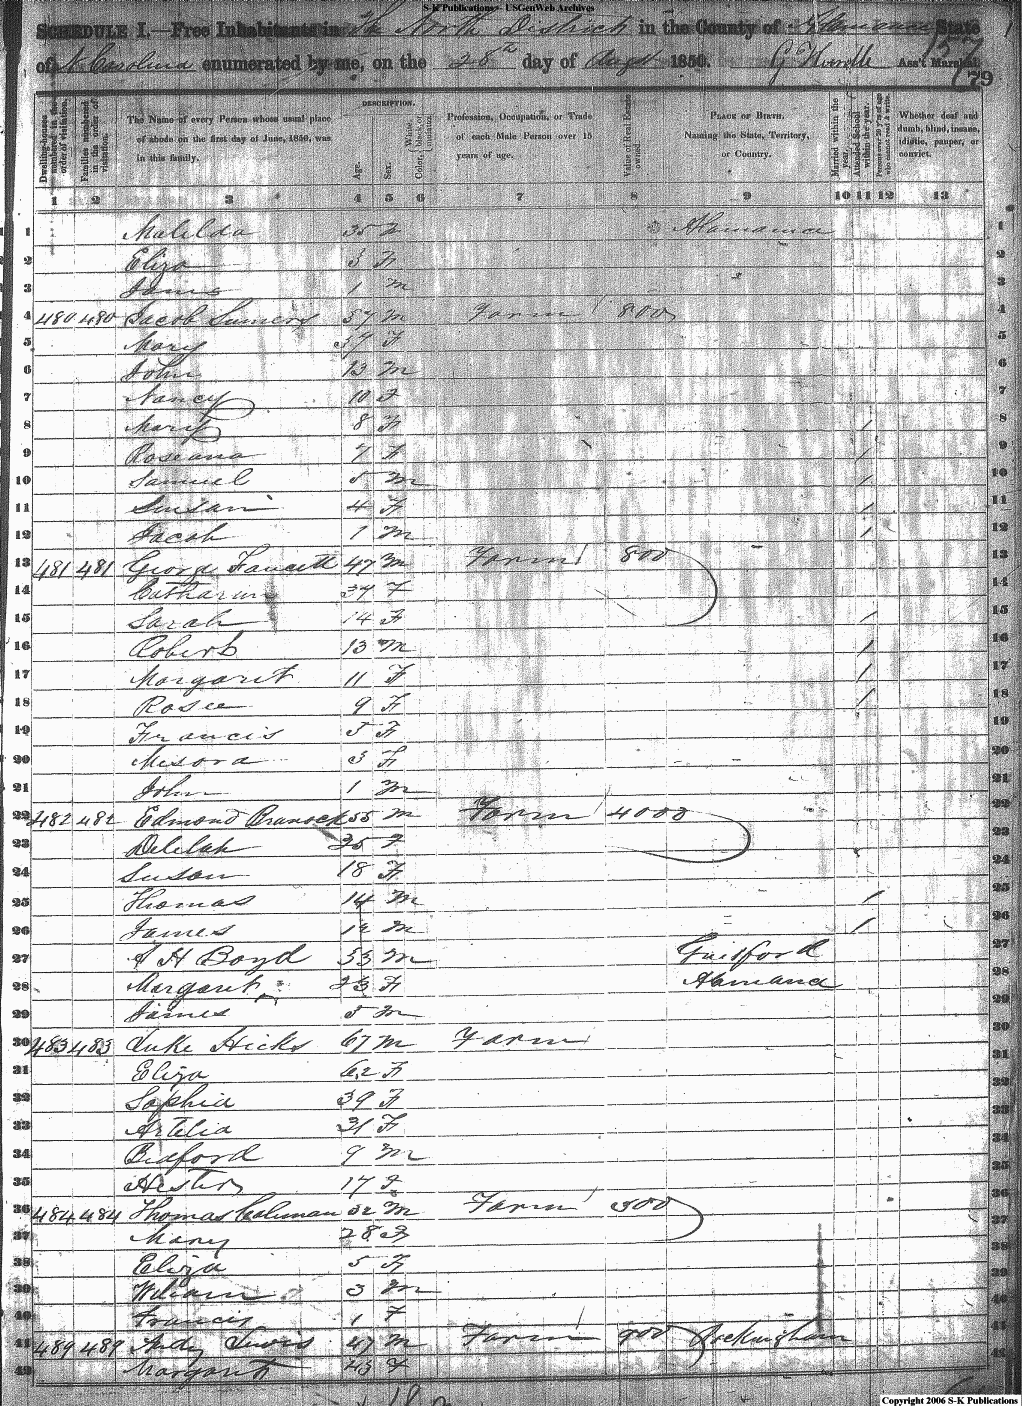 S-K Publications - USGenWeb Archives
SCHEDULE I.—Free Inhabitants in The North District in the County of Alamance State
of N Carolina enumerated by me, on the 28 day of Augt 1850. Ass't Marshal.
157
79
Dwelling-houses numbered in the order of visitation.
Families numbered in the order of visitation.
The Name of every Person whose usual place of abode on the first day of June, 1850, was in this family.
DESCRIPTION.
Age.
Sex.
Color, White, black, or mulatto.
Profession, Occupation, or Trade of each Male Person over 15 years of age.
Value of Real Estate owned.
PLACE OF BIRTH. Naming the State, Territory, or Country.
Married within the year.
Attended School within the year.
Persons over 20 y'rs of age who cannot read & write.
Whether deaf and dumb, blind, insane, idiotic, pauper, or convict.
1 2 3 4 5 6 7 8 9 10 11 12 13
1 Matilda 35 F Alamance 1
2 Eliza 3 F 2
3 James 1 M 3
4 480 480 Jacob Sumers 57 M Farm 800 4
5 Mary 37 F 5
6 John 13 M 6
7 Nancy 10 F 7
8 Mary 8 F / 8
9 Roseana 7 F / 9
10 Samuel 5 M / 10
11 Susan 4 F / 11
12 Jacob 1 M / 12
13 481 481 George Faucett 47 M Farm 800 13
14 Catharine 37 F 14
15 Sarah 14 F / 15
16 Robert 13 M / 16
17 Margaret 11 F / 17
18 Rosee 9 F / 18
19 Francis 5 F 19
20 Mesora 3 F 20
21 John 1 M 21
22 482 482 Edmond Branock 55 M Farm 4000 22
23 Delilah 35 F 23
24 Susan 18 F 24
25 Thomas 14 M / 25
26 James 12 M / 26
27 H Boyd 53 M Guilford 27
28 Margaret 23 F Alamance 28
29 James 5 M 29
30 483 483 Luke Hicks 67 M Farm 30
31 Eliza 62 F 31
32 Sophia 39 F 32
33 Artelia 31 F 33
34 Bedford 9 M 34
35 Hester 17 F 35
36 484 484 Thomas Coleman 32 M Farm 300 36
37 Mary 28 F 37
38 Eliza 5 F 38
39 William 3 M 39
40 Francis 1 F 40
41 489 489 Andy Lewis 47 M Farm 900 Rockingham 41
42 Margaret 43 F 42
Copyright 2006 S-K Publications